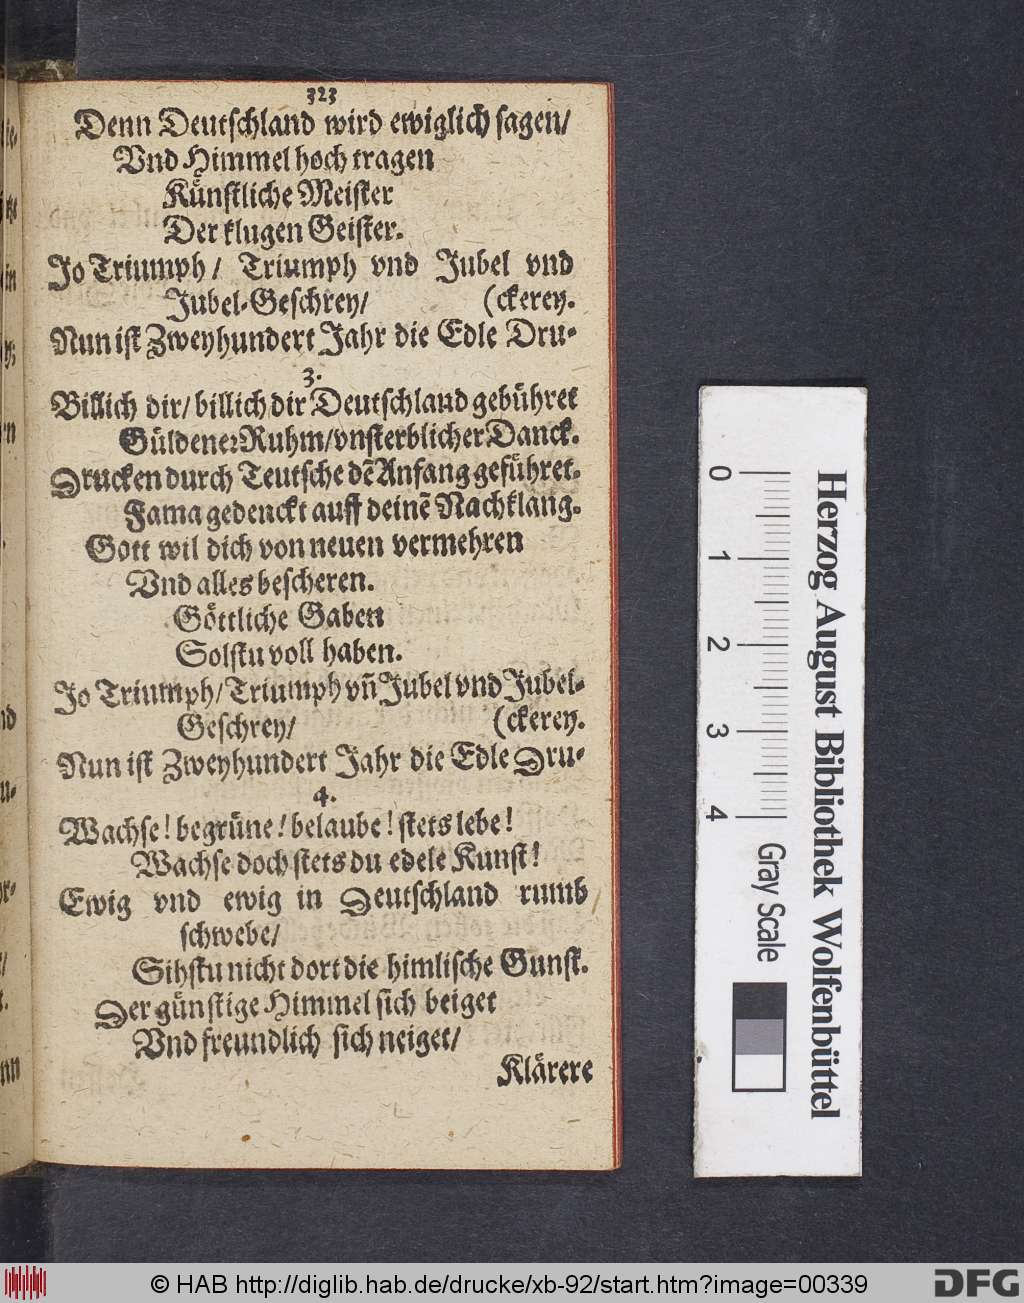 323
Denn Deutschland wird ewiglich sagen/
Vnd Himmel hoch tragen
Künstliche Meister
Der klugen Geister.
Jo Triumph / Triumph vnd Jubel vnd
Jubel-Geschrey/ (ckerey.
Nun ist Zweyhundert Jahr die Edle Dru-
3.
Billich dir/ billich dir Deutschland gebühret
Güldener Ruhm/vnsterblicher Danck.
Drucken durch Teutsche dẽ Anfang geführet.
Fama gedenckt auff deinẽ Nachklang.
Gott wil dich von neuen vermehren
Vnd alles bescheren.
Göttliche Gaben
Solstu voll haben.
Jo Triumph/ Triumph vñ Jubel vnd Jubel-
Geschrey/ (ckerey.
Nun ist Zweyhundert Jahr die Edle Dru-
4.
Wachse! begrüne! belaube! stets lebe!
Wachse doch stets du edele Kunst!
Ewig vnd ewig in Deutschland rumb
schwebe/
Sihstu nicht dort die himlische Gunst.
Der günstige Himmel sich beiget
Vnd freundlich sich neiget/
Klärere
0 1 2 3 4
Herzog August Bibliothek Wolfenbüttel
Gray Scale
© HAB http://diglib.hab.de/drucke/xb-92/start.htm?image=00339
DFG